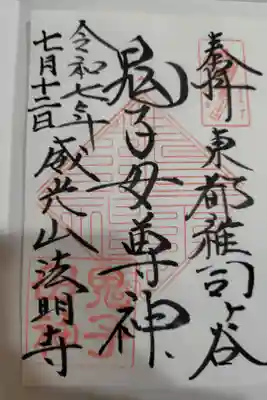 奉拝 東都雑司ヶ谷
鬼子母尊神
令和七年
七月十二日
威光山法明寺